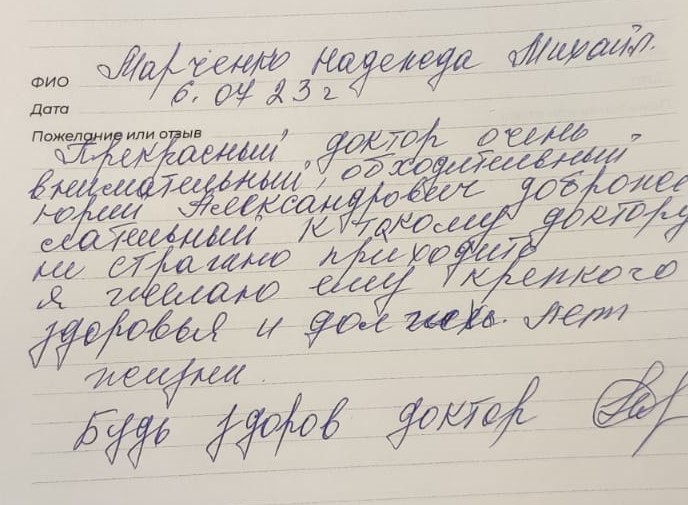 Марченко Надежда Михайл.
ФИО
6.07 23 г
Дата
Пожелание или отзыв
Прекрасный доктор очень
внимательный, обходительный
Юрий Александрович доброже
лательный к такому доктору
не страшно приходить
я желаю ему крепкого
здоровья и долгих лет
жизни.
Будь здоров доктор